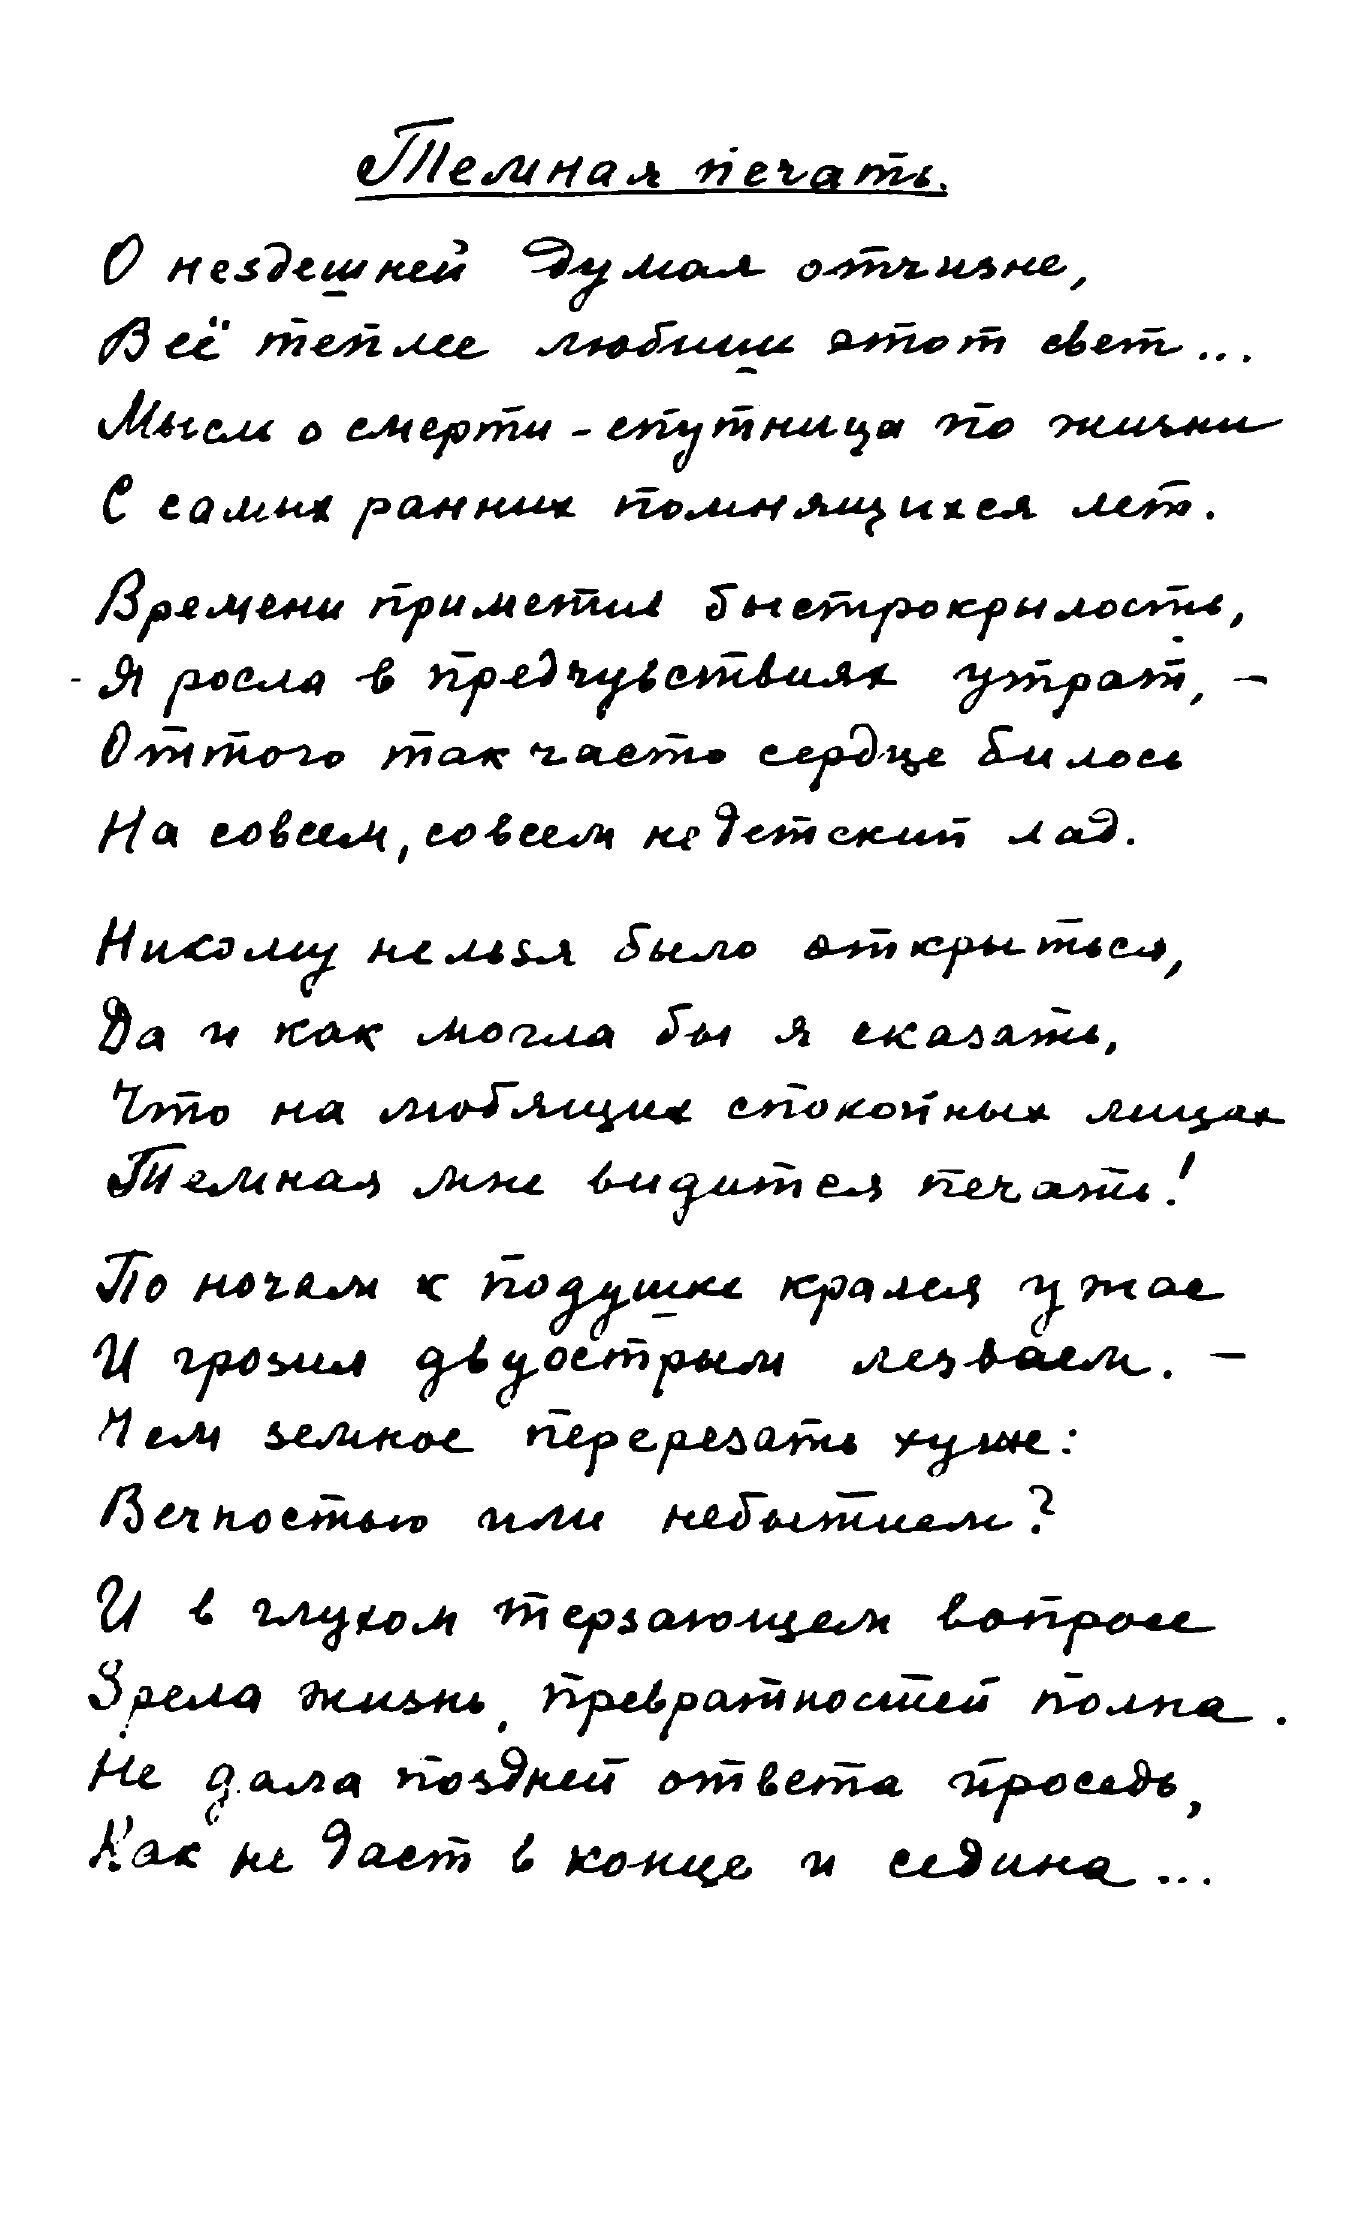 Темная печать.
О нездешней думая отчизне,
Всё теплее любиши этот свет...
Мысль о смерти - спутница по жизни
С самых ранних помнящихся лет.
Времени приметив быстрокрылость,
- Я росла в предчувствиях утрат, -
Оттого так часто сердце билось
На совсем, совсем недетский лад.
Никому нельзя было открыться,
Да и как могла бы я сказать,
Что на любящих спокойных лицах
Темная мне видится печать!
По ночам к подушке крался ужас
И грозил двуострым лезваем. -
Чем земное перерезать хуже:
Вечностью или небытием?
И в глухом терзающем вопросе
Зрела жизнь, превратностей полна.
Не дала поздней ответа проседь,
Как не даст в конце и седина...